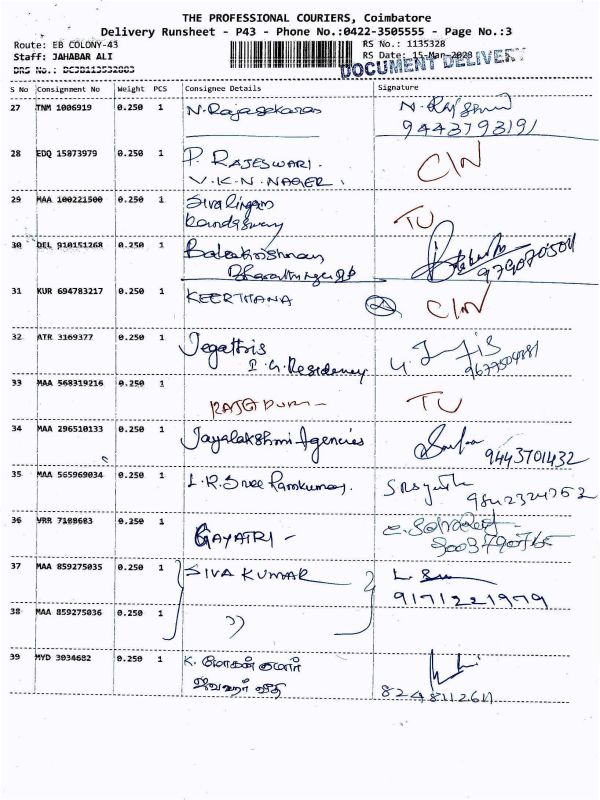 THE PROFESSIONAL COURIERS, Coimbatore
Delivery Runsheet - P43 - Phone No.:0422-3505555 - Page No.:3
Route: EB COLONY-43
RS No.: 1135328
Staff: JAHABAR ALI
RS Date: 15-Mar-2020
DOCUMENT DELIVERY
DRS No.: DC3B113532883
S No Consignment No Weight PCS Consignee Details Signature
27 TNM 1006919 0.250 1 N. Rajasekaran
9443793191
28 EDQ 15873979 0.250 1 P. RAJESWARI. C/N
V.K.N. NAGER.
29 MAA 100221500 0.250 1 Sivalingam TU
Kandaswamy
30 DEL 910151268 0.250 1 Balakrishnan
9790705011
31 KUR 694783217 0.250 1 KEERTHANA C/N
32 ATR 3169377 0.250 1 Jegathris
I.G. Residency
33 MAA 568319216 0.250 1
TU
34 MAA 296510133 0.250 1 Jayalakshmi Agencies
9443701432
35 MAA 565969034 0.250 1 L.R. Sree Ramkumar.
9842324752
36 VRR 7188683 0.250 1 GAYATRI -
37 MAA 859275035 0.250 1 SIVA KUMAR
9171221979
38 MAA 859275036 0.250 1 ))
39 MYD 3034682 0.250 1 K. மோகன் குமார்
8248112611